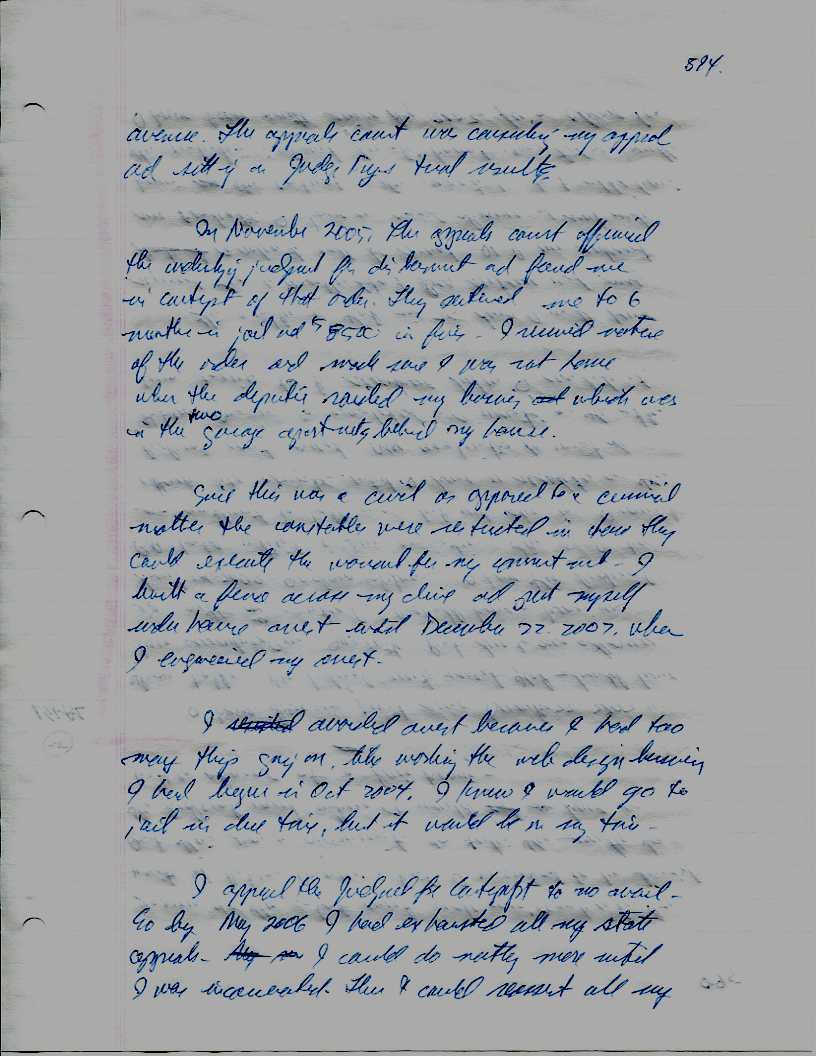 594.
avenue. The appeals court was considering my appeal
ad sitting on Judge trial results
In November 2005, the appeals court affirmed
the underlying judgment for disbarment ad found me
in contempt of that order. They sentenced me to 6
months in jail ad $8500 in fines. I received notice
of the order and made sure I was not home
when the deputies raided my business at which was
in the two garage apartments behind my house.
Since this was a civil as opposed to a criminal
matter the constables were restricted in how they
could execute the warrant for my commitment. I
built a fence across my drive ad put myself
under house arrest until December 22. 2007. when
I engineered my arrest.
I avoided arrest because I had too
many things going on, like working the web design business
I had begun in Oct 2004. I knew I would go to
jail in due time, but it would be on my time.
I appeal the judgment for Contempt to no avail.
So by May 2006 I had exhausted all my state
appeals. I could do nothing more until
I was incarcerated. Then I could reassert all my